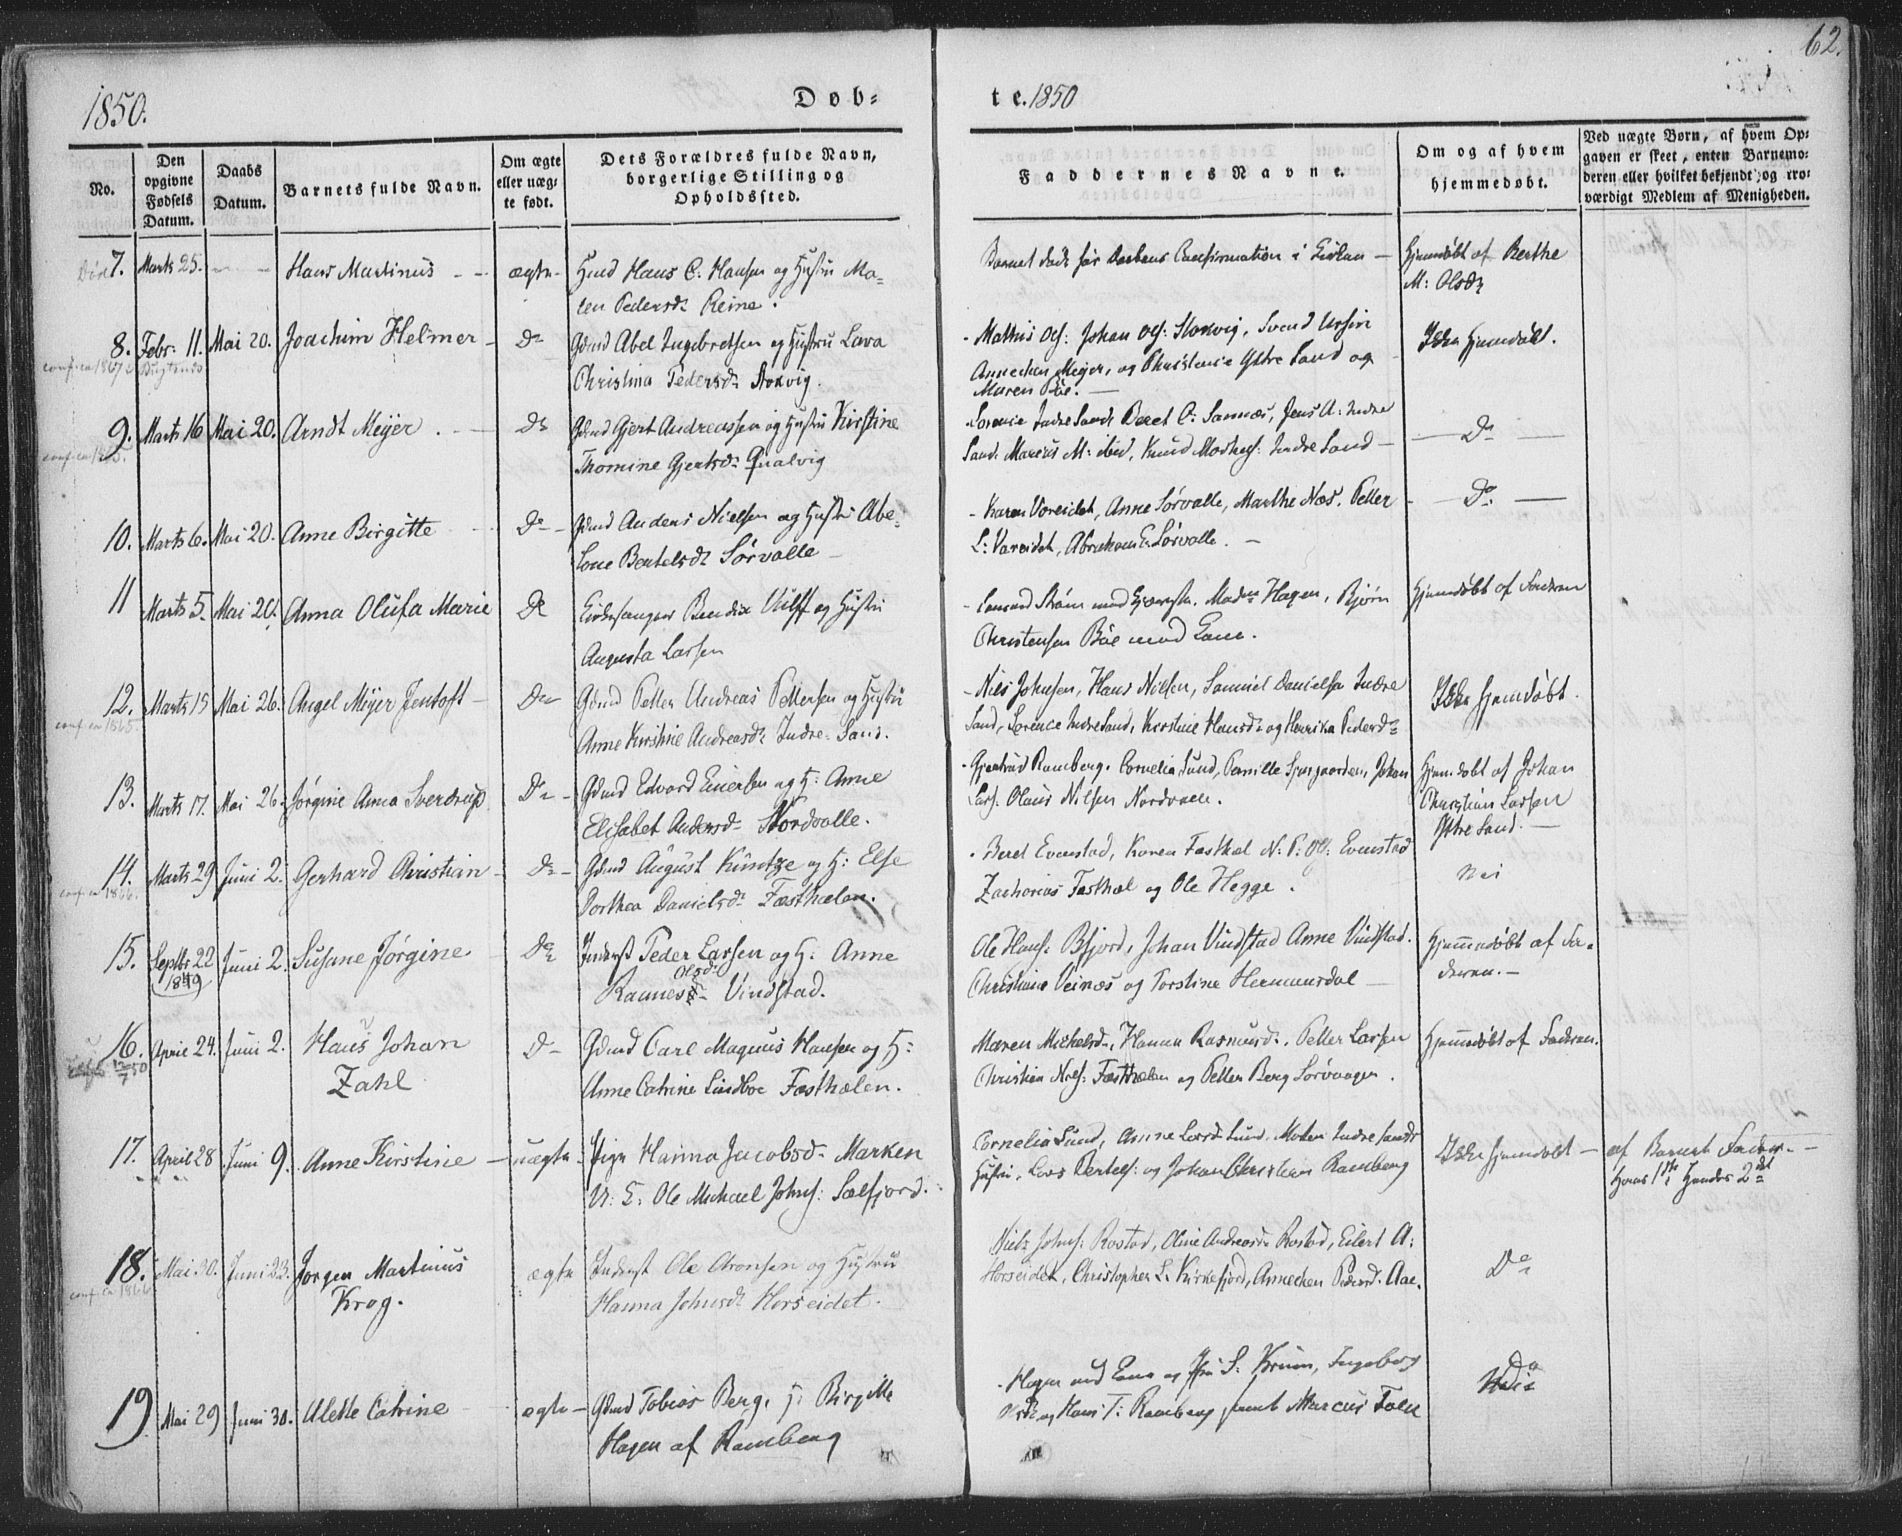 62.
1850.
Døb-
te. 1850
No.
Den opgivne Fødsels Datum.
Daabs Datum.
Barnets fulde Navn.
Om ægte eller uægte født.
Dets Forældres fulde Navn, borgerlige Stilling og Opholdssted.
Faddernes Navne.
Om og af hvem hjemmedøbt.
Ved uægte Børn, af hvem Opgaven er skeet, enten Barnemoderen eller hvilket bekjendt og troværdigt Medlem af Menigheden.
7. Marts 25. Hans Martinus ægte Hans C. Hansen og Hustru Ma-
len Pedersdr Reine.
Barnet døde før Daabens Confirmation i Kirken
Hjemmedøbt af Berthe
M: Olsdr
8. Febr: 11. Mai 20. Joachim Helmer Do Gdmd Abel Ingebretsen og Hustru Lava
Christina Pedersdr Stokvig.
Mathis Ols: Johan Ols: Stokvig, Svend Ursin
Annechen Meyer, og Christence Yttre Sand og
Maren Bøe.
Ikke hjemdøbt.
9. Marts 16 Mai 20. Arndt Meyer Do Gdmd Gjert Andreassen og Hustru Kirstine
Thomine Gjertsdr Qvalvig
Lorence Indre Sand, Beret C: Sannæs, Jens A: Indre
Sand. Marcus M: ibid, Knud Mathes: Indre Sand
Do
10. Marts 6. Mai 20. Anne Birgitte Do Gdmd Anders Nielsen og Hustru Abe-
lone Bentelsdr Sørvalle
Karen Vareidet, Anne Sørvalle, Marthe Næs. Petter
L: Vareidet, Abraham E: Sørvalle.
Do
11 Marts 5. Mai 20. Anna Olufa Marie Do Kirkesanger Bendix Ulff og Hustru
Augusta Larsen
Lensmd Strøm med Kjæreste. Madm Hagen, Bjørn
Christensen Bøe med Kone.
Hjemmedøbt af Faderen
12. Marts 15 Mai 26. Angel Meyer Jentoft Do Gdmd Petter Andreas Pettersen og Hustru
Anne Kirstine Andreasdr Indre Sand.
Niels Johnsen, Hans Nielsen, Samuel Danielsen Indre
Sand, Lorence Indre Sand, Kirstine Hansdr og Henrika Pedersdr
Ikke hjemdøbt.
conf. ca 1865.
13. Marts 17. Mai 26. Jørgine Anna Sverdrup Do Gdmd Edvard Enersen og H: Anne
Elisabet Andersdr Nordvalle.
Gjertrud Ramberg. Cornelia Sund, Pernille Sjursgaarden, Johan
Lars. Olaus Nilsen Nordvalle.
Hjemdøbt af Johan
Christian Larsen
Yttre Sand.
14. Marts 29 Juni 2. Gerhard Christian Do Gdmd August Kuntze og H: Else
Dorthea Danielsdr Fæsthælen.
Beret Evenstad, Karen Fæsthæl N: P: Ol: Evenstad
Zacharias Fæsthæl og Ole Hegge.
Nei
conf. ca 1866.
15. Septbr 22
1849
Juni 2. Susane Jørgine Do Inderst Peder Larsen og H: Anne
Olsdr
Ramnes Vindstad.
Ole Hans: Bfjord, Johan Vindstad Anne Vindstad.
Christiane Veinæs og Torstine Hermansdal
Hjemmedøbt af Fa-
deren.
16. April 24. Juni 2. Hans Johan
Zahl
Do Gdmd Carl Magnus Hansen og H:
Anne Catrine Lindboe Fæsthælen.
Maren Mickelsdr, Hanna Rasmusdr, Petter Larsen
Christian Niels: Fæsthælen og Petter Berg Sørvaagen.
Hjemmedøbt af Faderen.
17. April 28 Juni 9. Anne Kirstine uægte Pige Hanna Jacobsdr Marken
U: K: Ole Michael Johns: Sælfjord.
Cornelia Sund, Anne Larsd Sund. Morten Indre Sands
Hustru, Lars Bertels: og Johan Christian Ramberg
Ikke hjemdøbt
af Barnets Fader.
Hans 1ste Hendes 2det
18. Mai 20. Juni 23. Jørgen Martinus
Krog.
ægte Inderst Ole Aronsen og Hustru
Hanna Johnsdr Horseidet.
Niels Johns: Rostad, Oline Andreasdr Rostad, Eilert A:
Horseidet, Christopher L. Kirkefjord, Annechen Pedersd. Aae.
Do
conf. ca 1866
19 Mai 29 Juni 30. Alette Catrine ægte Gdmd Tobias Berg, H: Birgitte
Hagen af Ramberg
Hagen med Kone og Fru S: Krum, Ingeborg
Olsdr og Hans T: Ramberg samt Marcus Falk
Do